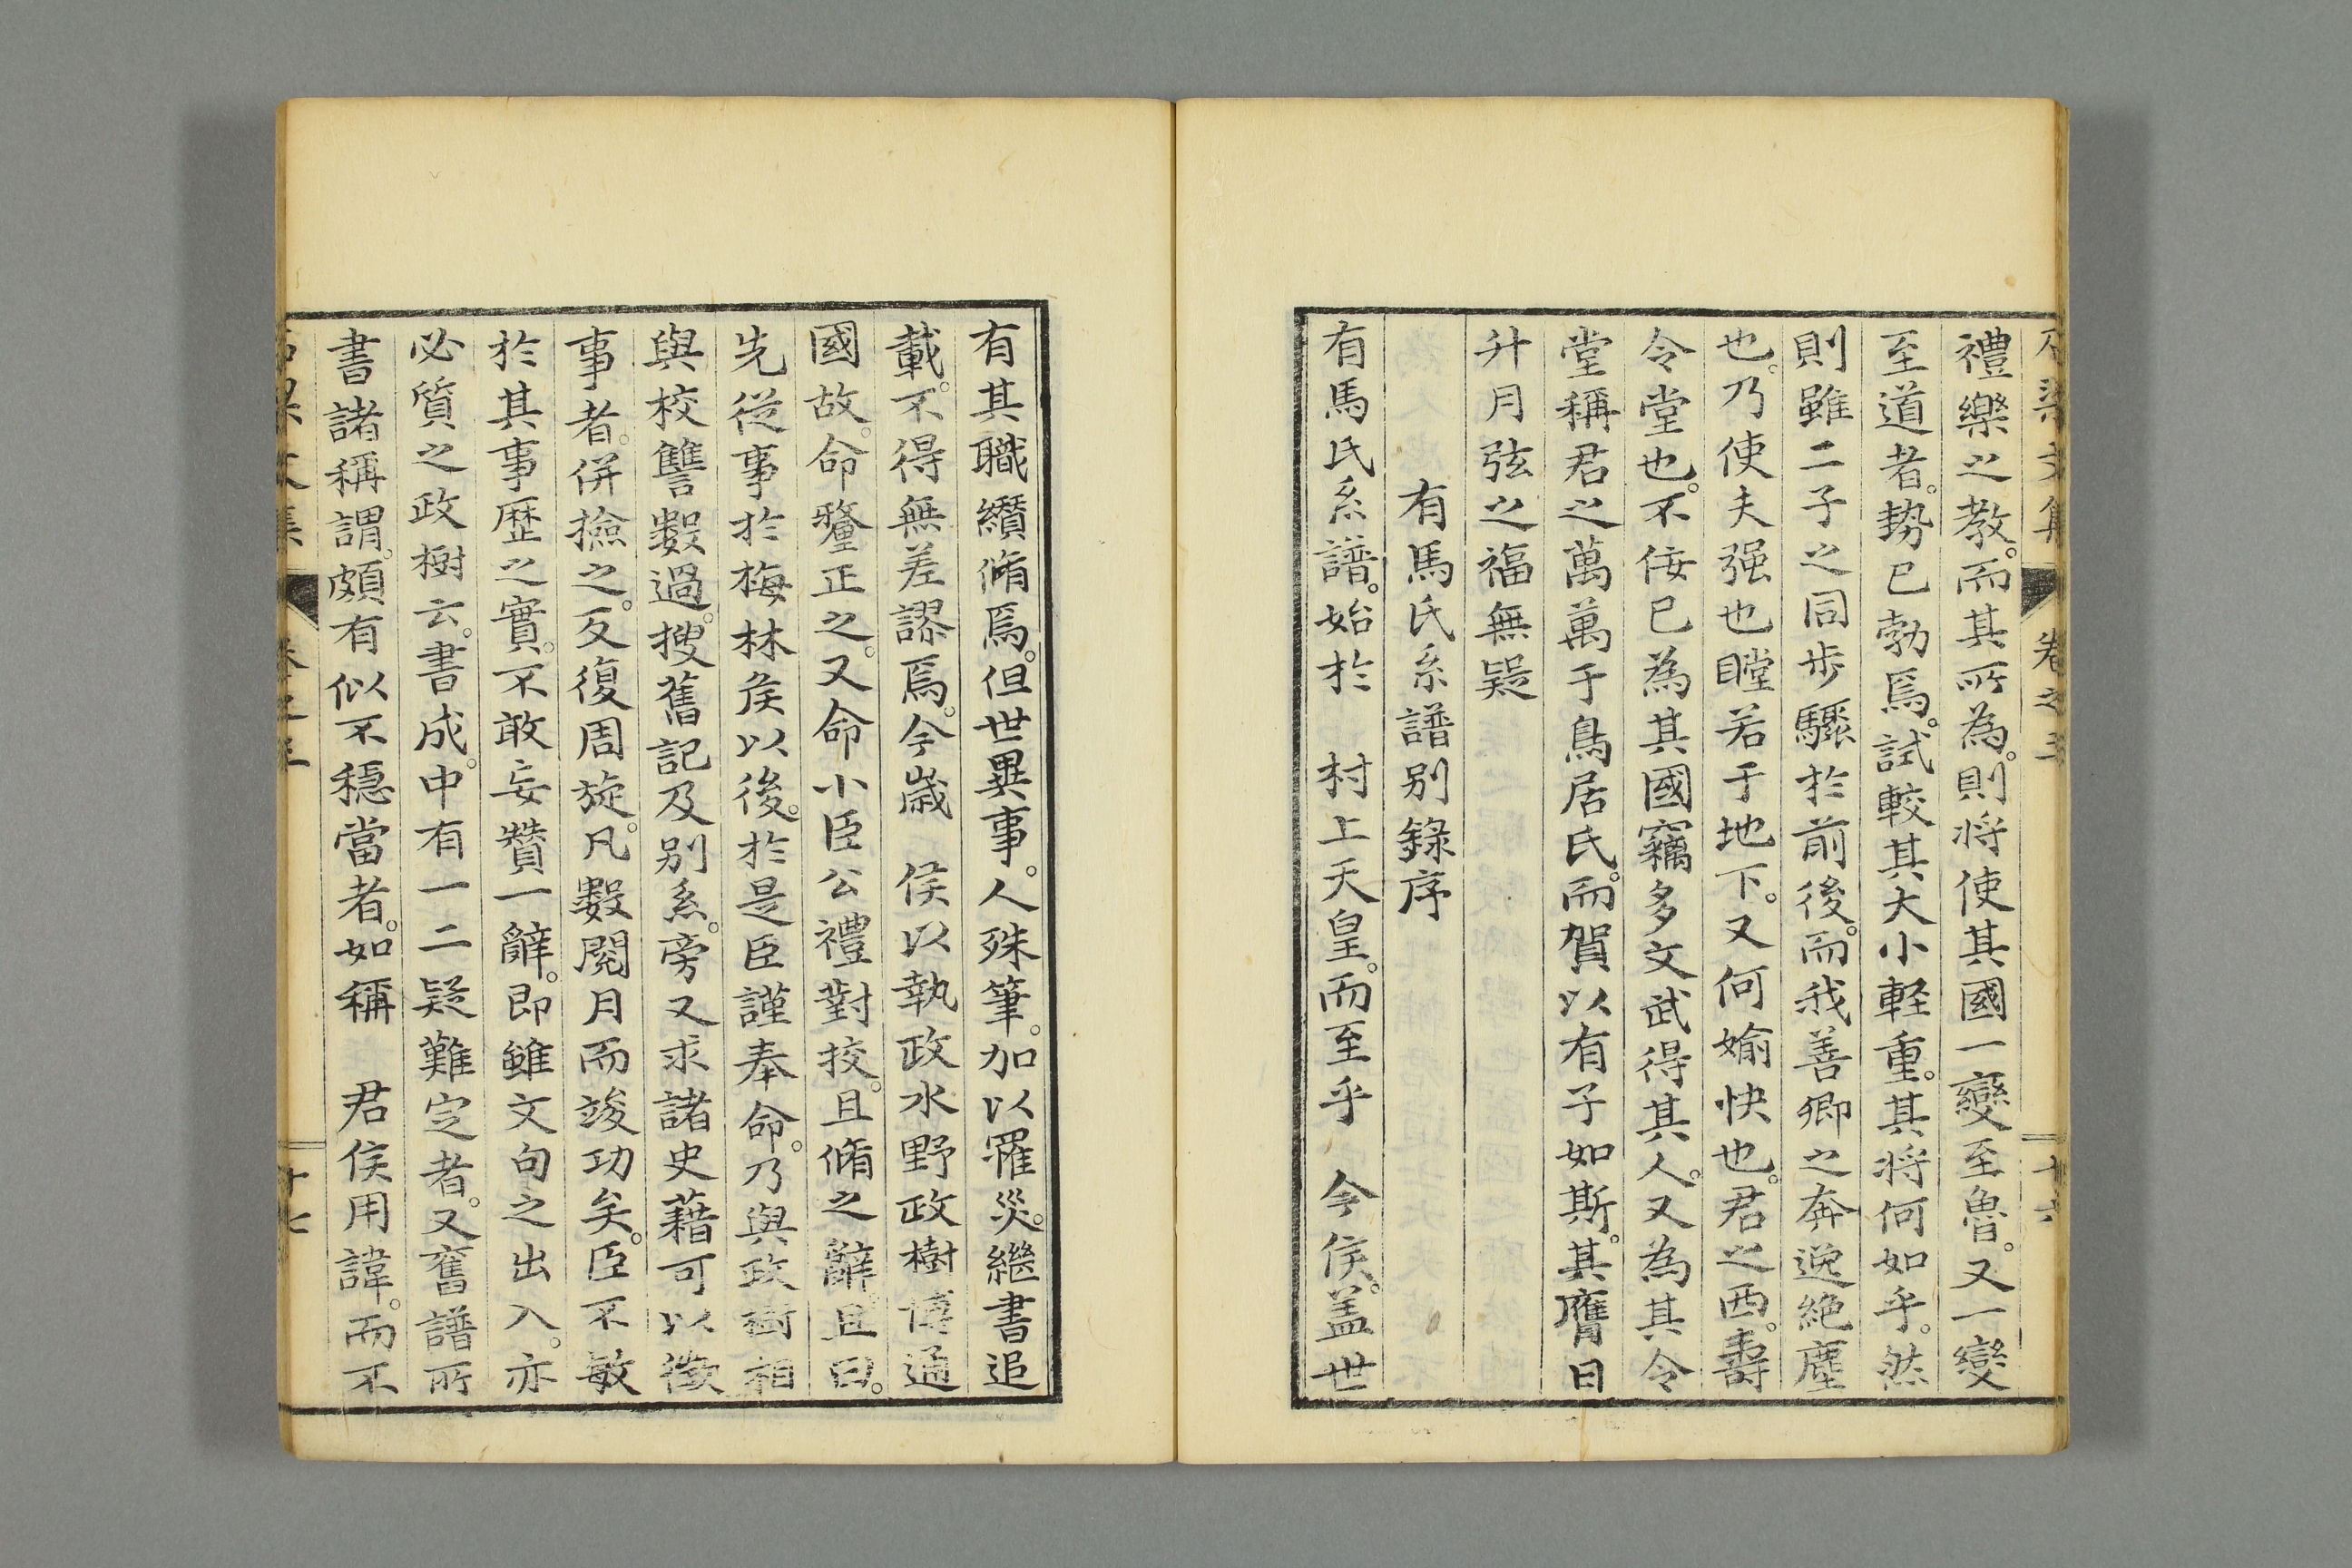 禮樂之教。而其所為。則将使其國一變至魯。又一變
至道者。勢已勃焉。試較其大小軽重。其将何如乎。然
則雖二子之同歩驟於前後。而我善卿之奔逸絶塵
也。乃使夫强也瞠若于地下。又何媮快也。君之西。壽
令堂也。不佞已為其國竊多文武得其人。又為其令
堂稱君之萬萬于鳥居氏。而賀以有子如斯。其膺日
升月弦之福無疑
有馬氏系譜别錄序
有馬氏系譜。始於 村上天皇。而至乎 今侯。盖世
有其職纘脩焉。但世異事。人殊筆。加以罹災。繼書追
載。不得無差謬焉。今歳 侯以執政水野政樹博通
國故。命釐正之。又命小臣公禮對挍。且脩之辭。且曰。
先従事於梅林矦以後。於是臣謹奉命。乃與政樹相
與校讐數過。搜舊記及别系。旁又求諸史藉可以徴
事者。併撿之。反復周旋。凡數閲月而竣功矣。臣不敏
於其事歴之實。不敢妄贊一辭。即雖文句之出入。亦
必質之政樹云。書成。中有一二疑難定者。又舊譜所
書諸稱謂。頗有似不穏當者。如稱 君侯用諱。而不
文集 卷之三 十七